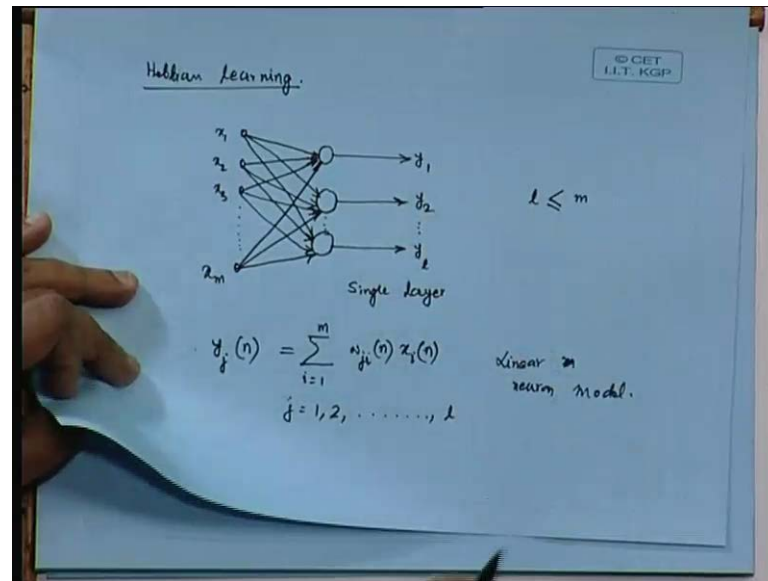 Hebbian Learning.
© CET
I.I.T. KGP
x₁
x₂
x₃
xₘ
y₁
y₂
yₗ
l ≤ m
Single Layer
yⱼ(n) = ∑ᵢ₌₁ᵐ wⱼᵢ(n) xᵢ(n)
j = 1, 2, ......., l
Linear
neuron model.